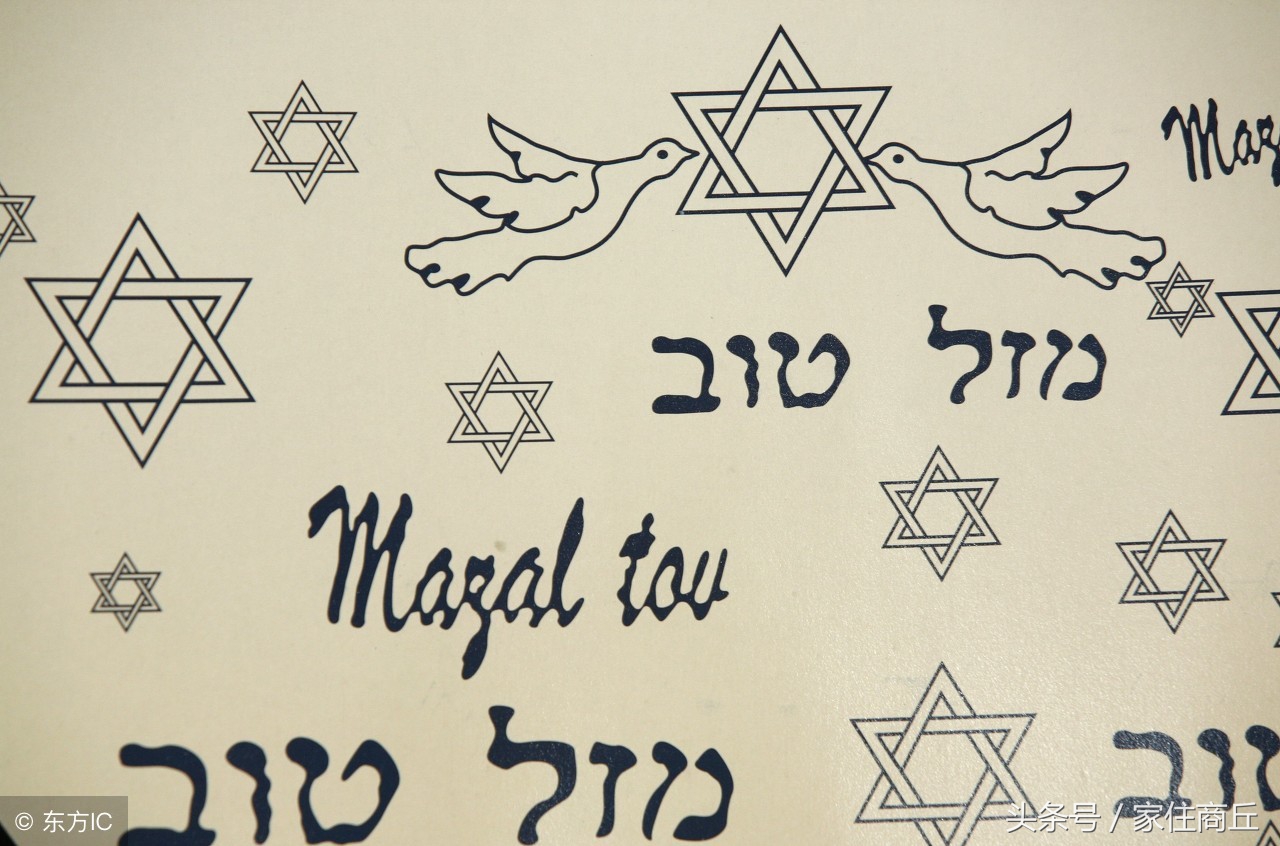 מזל טוב
Mazal tov
מזל טוב
© 东方IC
头条号 / 家住商丘